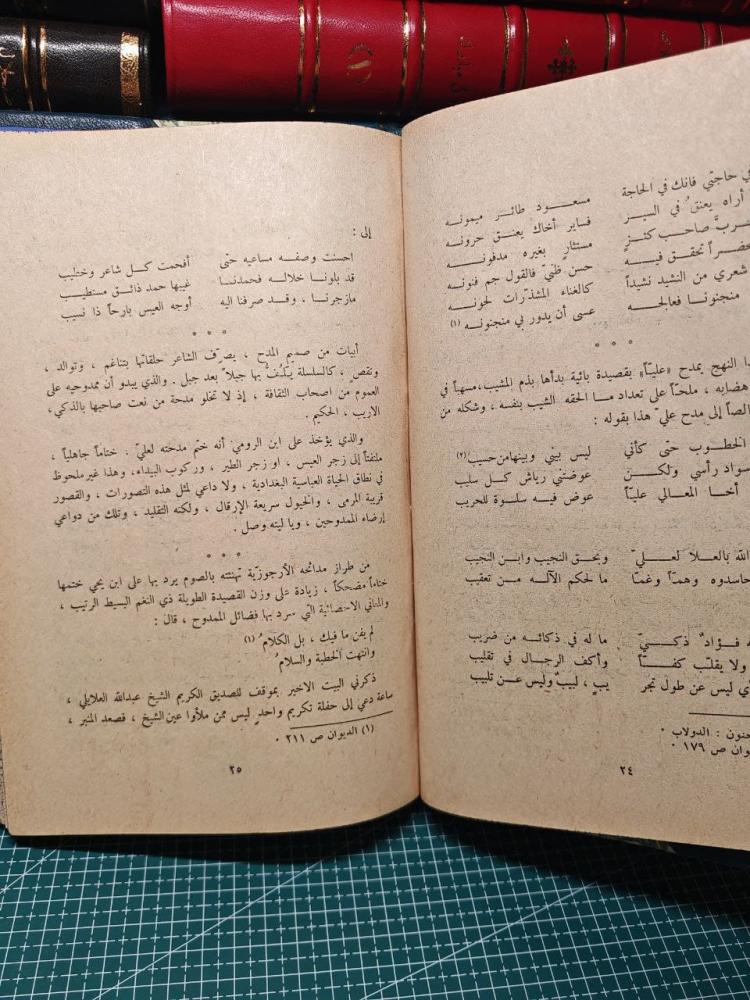 في حاجتي فانك في الحاجة مسعود طائر ميمونه
أراه يعنق في السير فساير أخاك يعنق حرونه
ربّ صاحب كنز مستثار بغيره مدفونه
تحقق فيه حسن ظنيّ فالقول جم فنونه
شعري من النشيد نشيداً كالغناء المشذّرات لحونه
منجنونا فعالجه عسى أن يدور بي منجنونه (١)
* * *
ا النهج يمدح «عليّاً» بقصيدة بائية بدأها بذم المشيب، مسهباً في
هضابه ، ملحّاً على تعداد مـا الحقه الشيب بنفسه ، وشكله من
الصاً إلى مدح عليّ هذا بقوله :
الخطوب حتى كأني ليس بيني وبينها من حسيب (٢)
سواد رأسي ولكن عوضتني رياش كل سليب
أخا المعالي عليّاً عوض فيه سلوة للحريب
الله بالعلا لعليّ وبحق النجيب وابن النجيب
حاسدوه وهمّاً وغمّا ما لحكم الآله من تعقيب
فؤاد ذكيّ ما له في ذكائه من ضريب
ولا يقلّب كفّاً وأكف الرجال في تقليب
أي ليس عن طول تجر يبٍ ، لبيبٌ وليس عن تلبيب
: الدولاب .
ص ١٧٩ .
٢٤
إلى :
احسنت وصفه مساعيه حتى أفحمت كل شاعر وخطيب
قد بلونا خلاله فحمدنا غيبها حمد ذائق مستطيب
مازجرنا ، وقد صرفنا اليه أوجه العيس بارحاً ذا نعيب
* * *
أبيات من صميم المدح ، يصرّف الشاعر حلقاتها بتناغم ، وتوالد ،
ونقص ، كالسلسلة يَلتفُ بها جبلاً بعد جبل . والذي يبدو أن ممدوحيه على
العموم من اصحاب الثقافة ، إذ لا تخلو مدحة من نعت صاحبها بالذكي،
الاريب ، الحكيم .
والذي يؤخذ على ابن الرومي أنه ختم مدحته لعليّ . ختاماً جاهلياً ،
ملتفتاً إلى زجر العيس ، او زجر الطير ، وركوب البيداء، وهذا غير ملحوظ
في نطاق الحياة العباسية البغدادية ، ولا داعي لمثل هذه التصورات ، والقصور
قريبة المرمى ، والخيول سريعة الإرقال ، ولكنه التقليد ، وتلك من دواعي
إرضاء الممدوحين ، ويا ليته وصل .
* * *
من طراز مدائحه الأرجوزيّة تهنئته بالصوم يرد بها على ابن يحي ختمها
ختاماً مضحكاً ، زيادة على وزن القصيدة الطويلة ذي النغم البسيط الرتيب ،
والمباني التي سرد بها فضائل الممدوح ، قال :
لم يفن ما فيك ، بل الكلامُ (١)
وانتهت الخطبة والسلامُ
ذكرني البيت الاخير بموقف للصديق الكريم الشيخ عبدالله العلايلي ،
ساعة دعي إلى حفلة تكريم واحدٍ ليس ممن ملأوا عين الشيخ ، فصعد المنبر ،
(١) الديوان ص ٢١١ .
٢٥